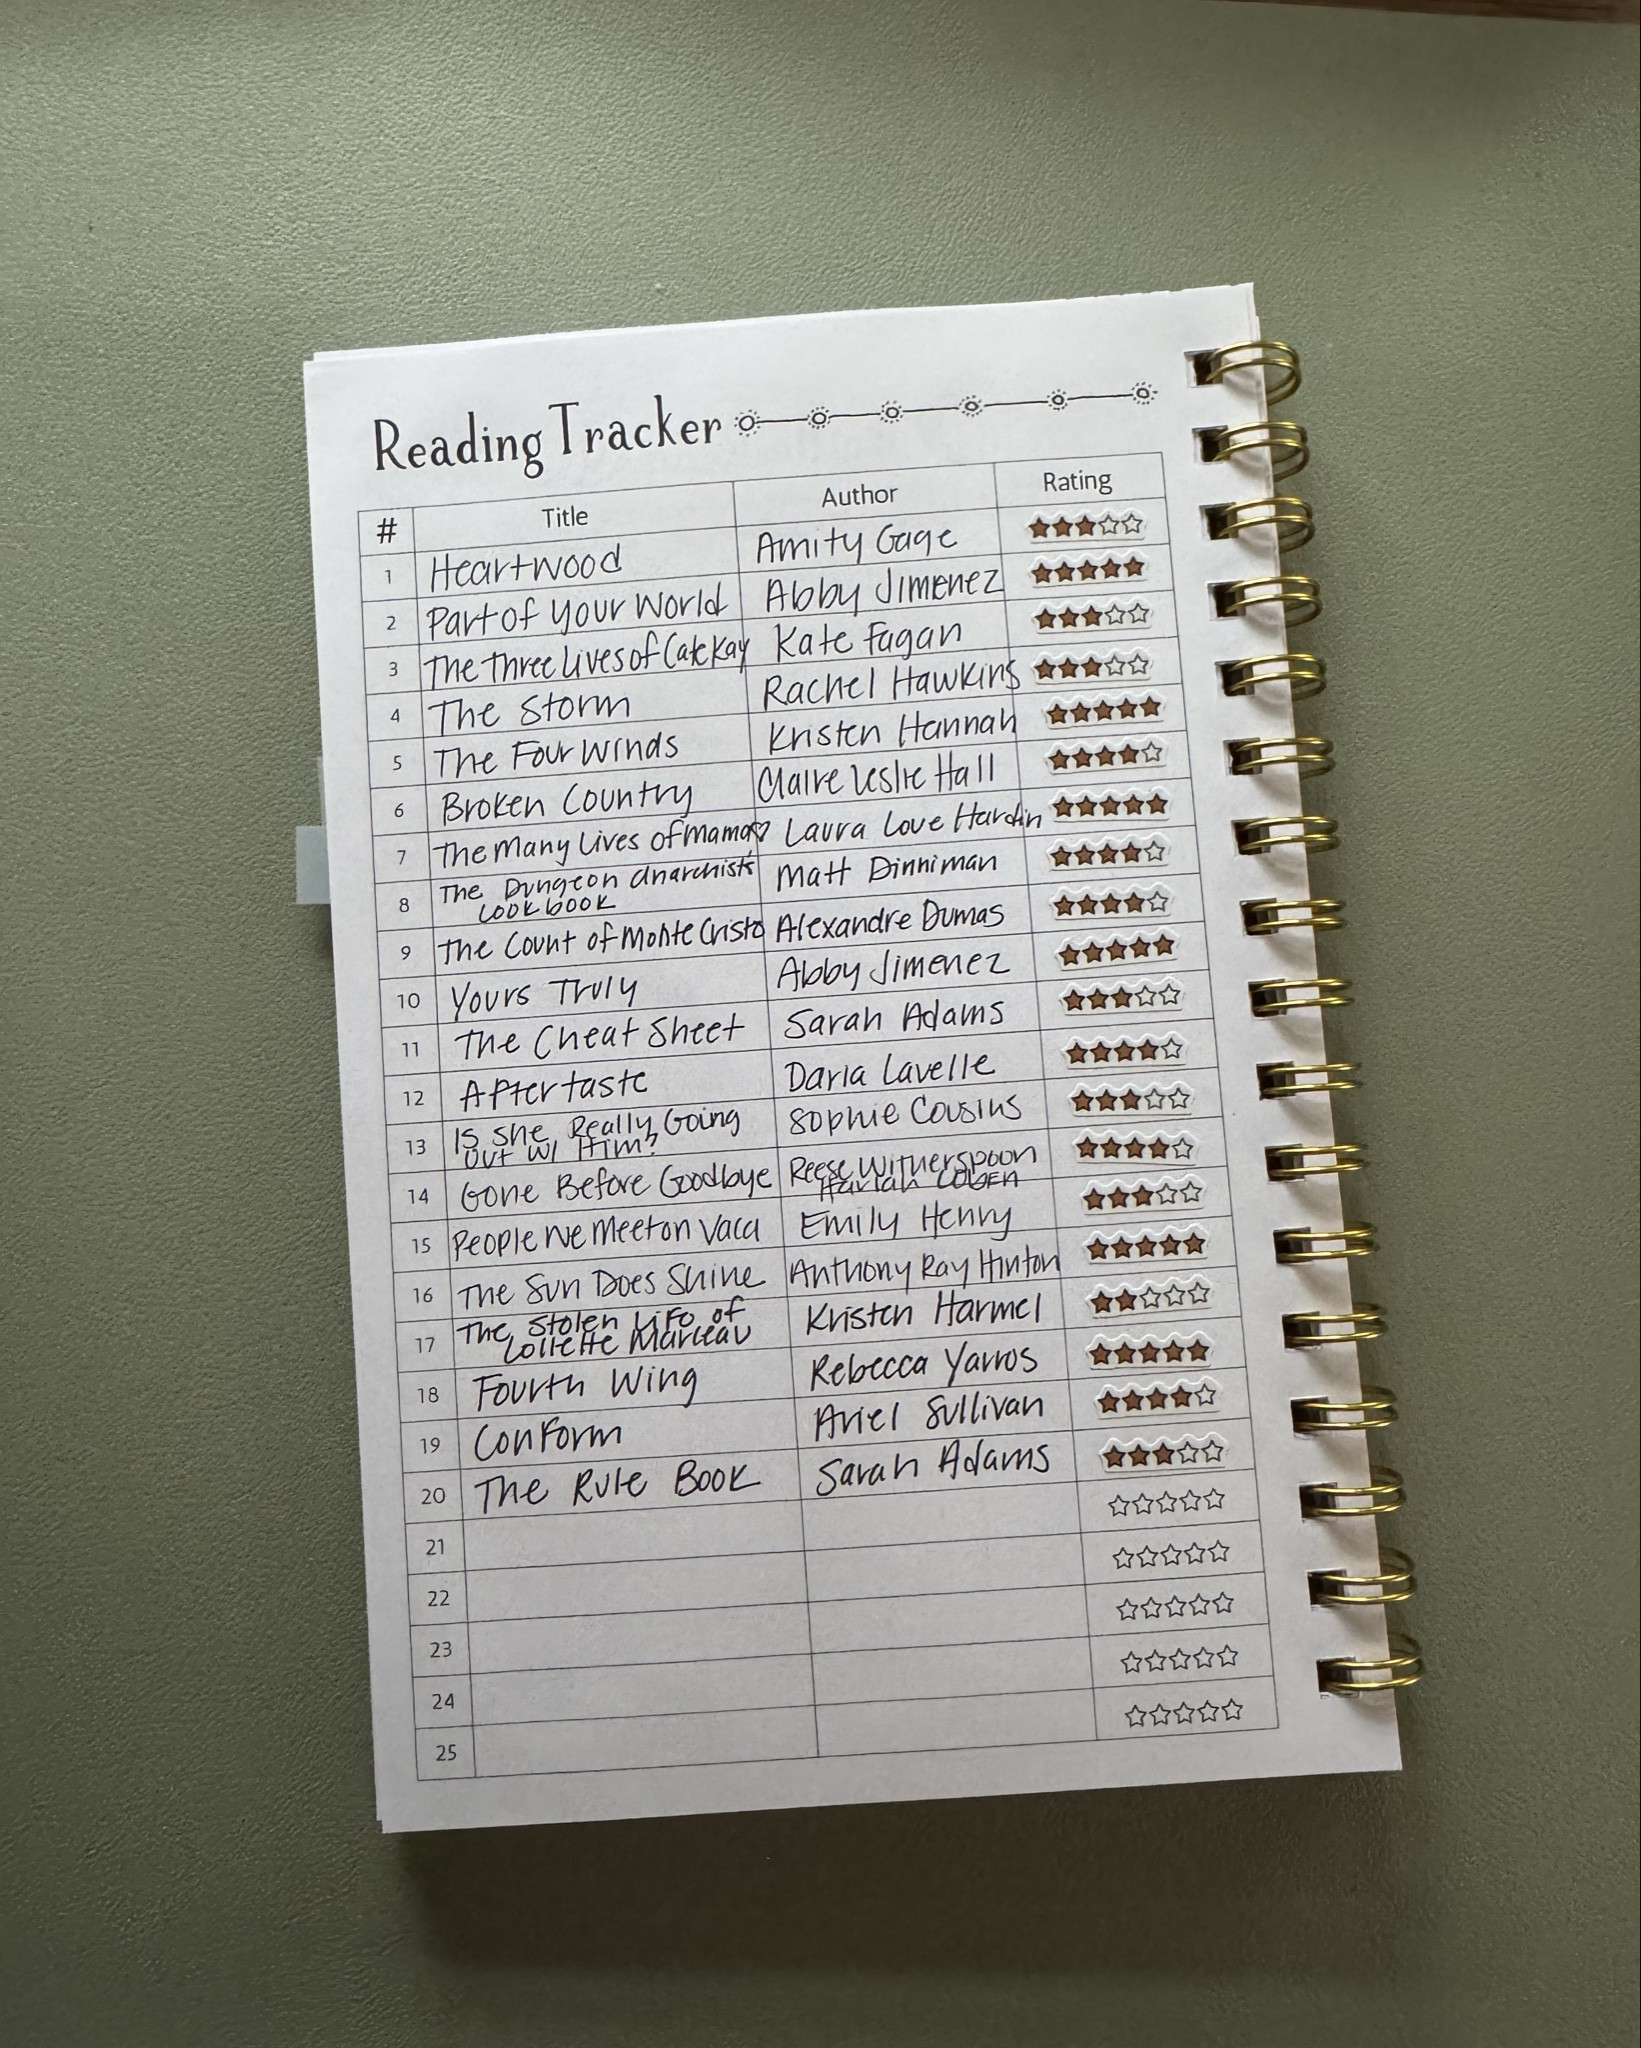 Reading Tracker
# Title Author Rating
1 Heartwood Amity Gage
2 Part of Your World Abby Jimenez
3 The Three Lives of Cate Kay Kate Fagan
4 The Storm Rachel Hawkins
5 The Four Winds Kristen Hannah
6 Broken Country Claire Leslie Hall
7 The Many Lives of Mama Laura Love Hardin
8 The Dungeon Anarchist's
Cookbook Matt Dinniman
9 The Count of Monte Cristo Alexandre Dumas
10 Yours Truly Abby Jimenez
11 The Cheat Sheet Sarah Adams
12 Aftertaste Daria Lavelle
13 Is She Really Going
out w/ Him? Sophie Cousins
14 Gone Before Goodbye Reese Witherspoon
Harlan Coben
15 People We Meet on Vaca Emily Henry
16 The Sun Does Shine Anthony Ray Hinton
17 The Stolen Life of
Collette Marceau Kristen Harmel
18 Fourth Wing Rebecca Yarros
19 Conform Ariel Sullivan
20 The Rule Book Sarah Adams
21
22
23
24
25